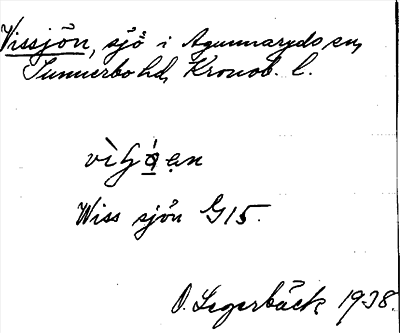 Vissjön, sjö i Agunnaryds sn,
Sunnerbo hd, Kronob. l.
Wiss sjön G15.
O. Legerbäck 1938.